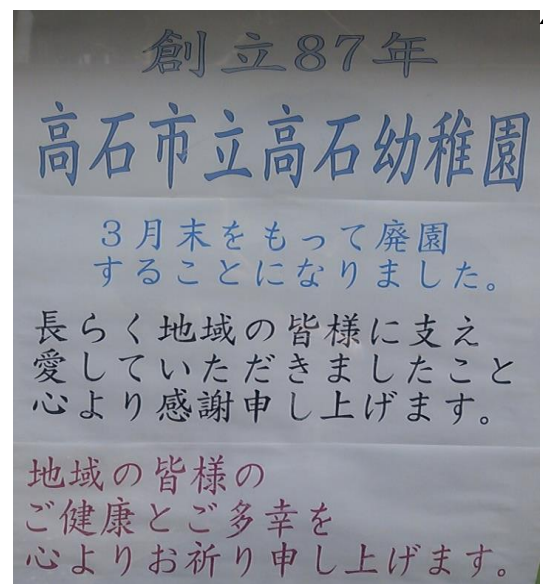 創立87年
高石市立高石幼稚園
3月末をもって廃園
することになりました。
長らく地域の皆様に支え
愛していただきましたこと
心より感謝申し上げます。
地域の皆様の
ご健康とご多幸を
心よりお祈り申し上げます。